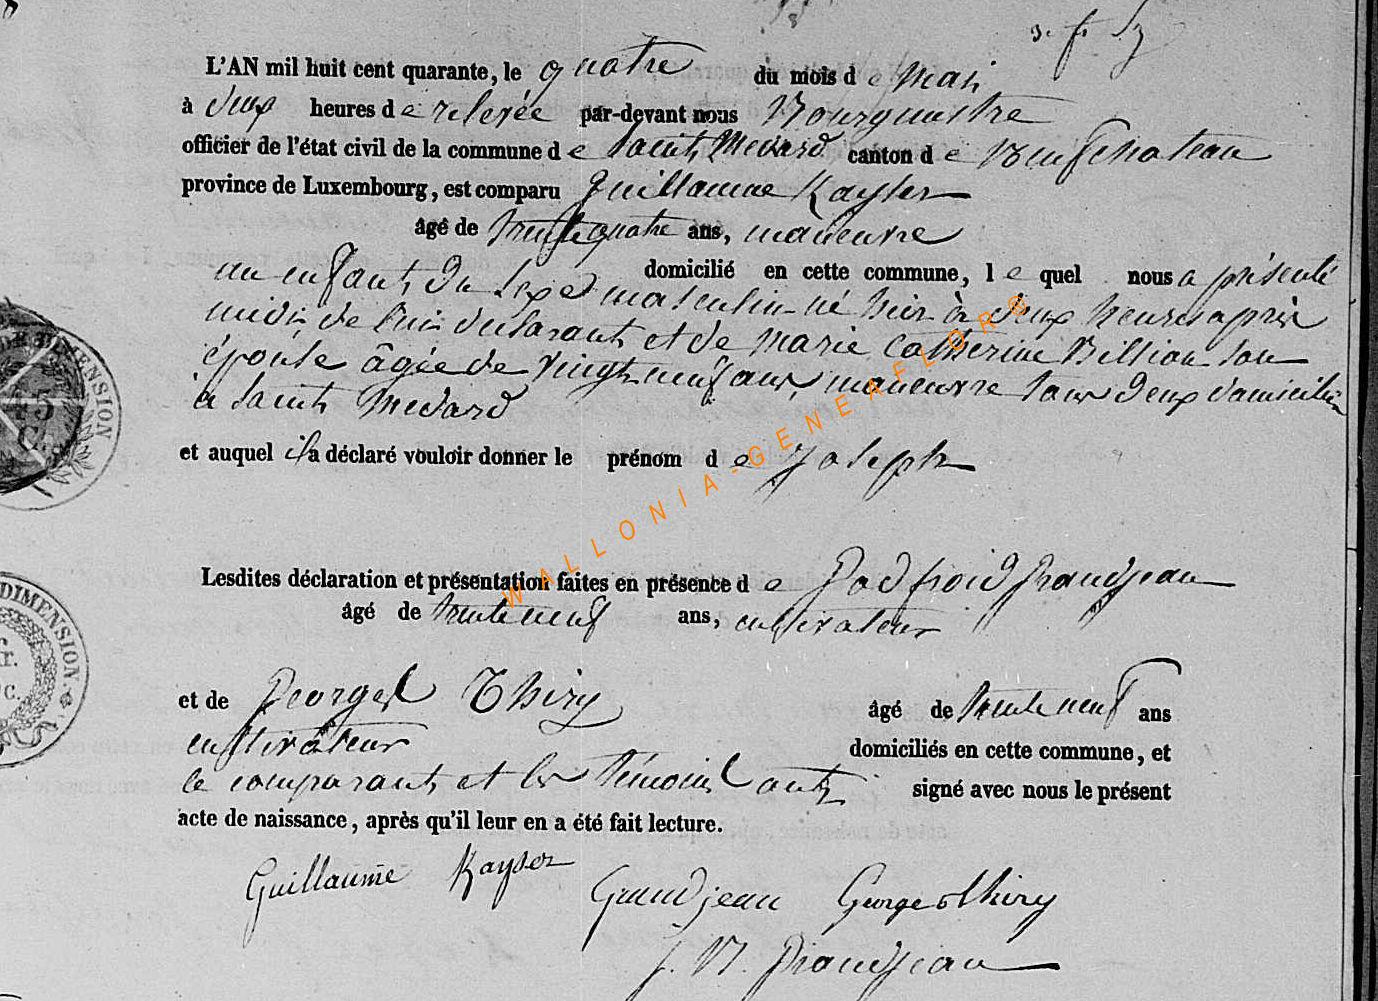 L'AN mil huit cent quarante, le quatre du mois de mai
à deux heures de relevée par-devant nous Bourguestre
officier de l'état civil de la commune de Saint Medard canton de Neufchateau
province de Luxembourg, est comparu Guillaume Kayser
âgé de trente quatre ans, manœuvre
domicilié en cette commune, lequel nous a présenté
un enfant du sexe masculin né hier à deux heures après
midi de lui déclarant et de Marie Catherine Billiau son
épouse âgée de vingt neuf ans, manœuvre tous deux domiciliés
à Saint Medard
et auquel il a déclaré vouloir donner le prénom de Joseph
Lesdites déclaration et présentation faites en présence de Godfroid Grandjean
âgé de trente neuf ans, cultivateur
et de Georges Thiry âgé de trente neuf ans
cultivateur domiciliés en cette commune, et
le comparant et les témoins ont signé avec nous le présent
acte de naissance, après qu'il leur en a été fait lecture.
Guillaume Kayser
Grandjean George Thiry
J. N. Grandjean
WALLONIA-GENEAFLORE
DIMENSION
45
C
DIMENSION.